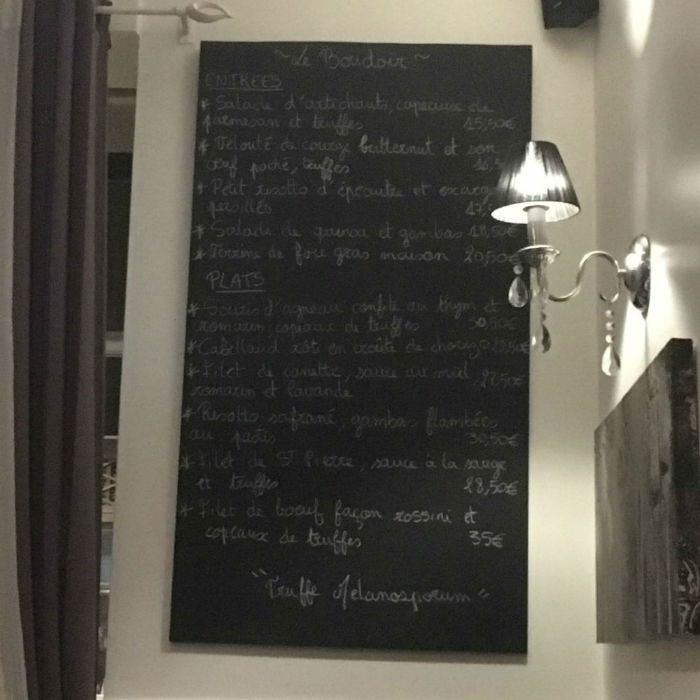 ~ Le Boudoir ~
ENTREES
* Salade d'artichauts, copeaux de
parmesan et truffes 15,50€
* Velouté de courge butternut et son
œuf poché, truffes
* Petit risotto d'épeautre et
persillés 17,
* Salade de quinoa et gambas 18,50€
* Terrine de foie gras maison 20,50€
PLATS
* Souris d'agneau confite au thym et
romarin, copeaux de truffes 30,50€
* Cabillaud rôti en croûte de chorizo
* Filet de canette, sauce au miel
romarin et lavande 27,50€
* Risotto safrané, gambas flambées
au pastis 30,50€
* Filet de St Pierre, sauce à la sauge
et truffes 28,50€
* Filet de boeuf façon rossini et
copeaux de truffes 35€
"Truffe Melanosporum"